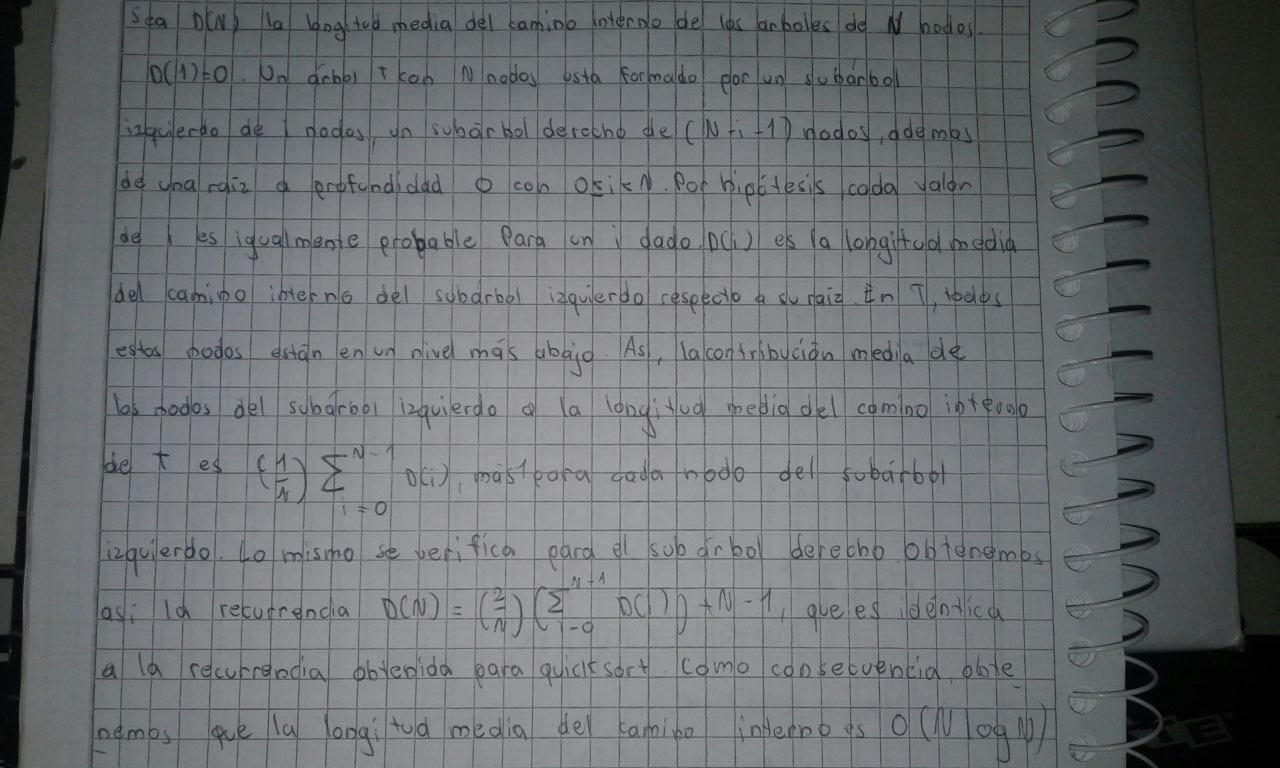 Sea D(N) la longitud media del camino interno de los arboles de N nodos.
D(1)=0. Un árbol T con N nodos esta formado por un subárbol
izquierdo de i nodos, un subárbol derecho de (N-i-1) nodos, ademas
de una raíz a profundidad 0 con 0≤i<N. Por hipótesis cada valor
de i es igualmente probable Para un i dado, D(i) es la longitud media
del camino interno del subárbol izquierdo respecto a su raíz. En T, todos
estos nodos están en un nivel más abajo. Así, la contribución media de
los nodos del subárbol izquierdo a la longitud media del camino interno
de T es (1/N) ∑_{i=0}^{N-1} D(i), más 1 para cada nodo del subárbol
izquierdo. Lo mismo se verifica para el subárbol derecho obtenemos
así la recurrencia D(N) = (2/N) (∑_{i=0}^{N-1} D(i)) + N-1, que es idéntica
a la recurrencia obtenida para quicksort. Como consecuencia, obte
nemos que la longitud media del camino interno es O(N log N)